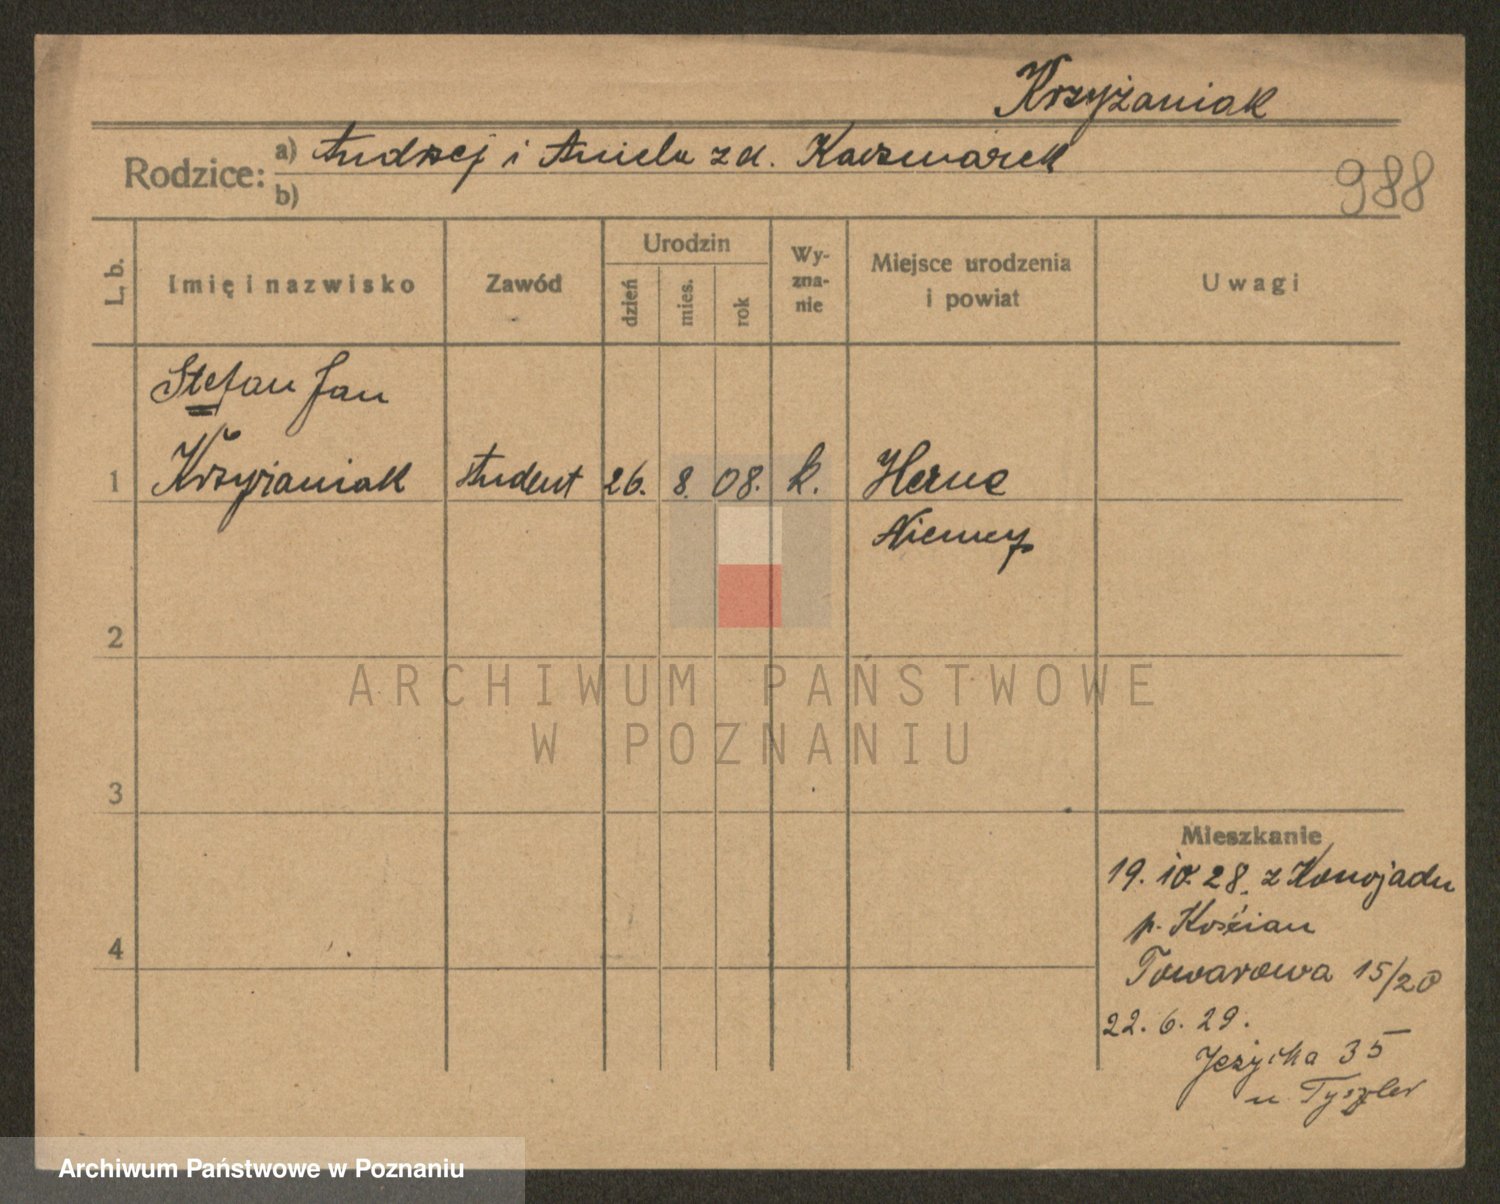 Krzyżaniak
Rodzice: a) Andrzej i Aniela z d. Kaczmarek
b)
988
L. b.
Imię i nazwisko
Zawód
Urodzin
dzień
mies.
rok
Wy-
zna-
nie
Miejsce urodzenia
i powiat
Uwagi
Stefan Jan
1 Krzyżaniak student 26. 8. 08. k. Herne
Niemcy
2
ARCHIWUM PAŃSTWOWE
W POZNANIU
3
Mieszkanie
19. 10. 28. z Konojadu
p. Kościan
4
Towarowa 15/20
22. 6. 29.
Jeżycka 35
u Tyszler
Archiwum Państwowe w Poznaniu